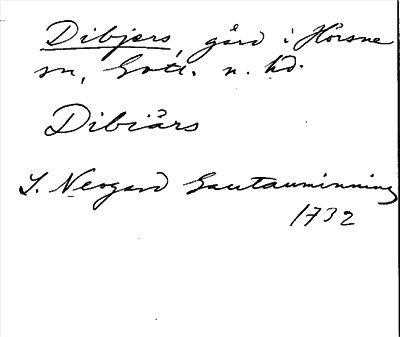 Dibjers, gård i Hörsne
sn, Gotl. n. hd.
Dibiårs
J. Neogard Gautauminning
1732